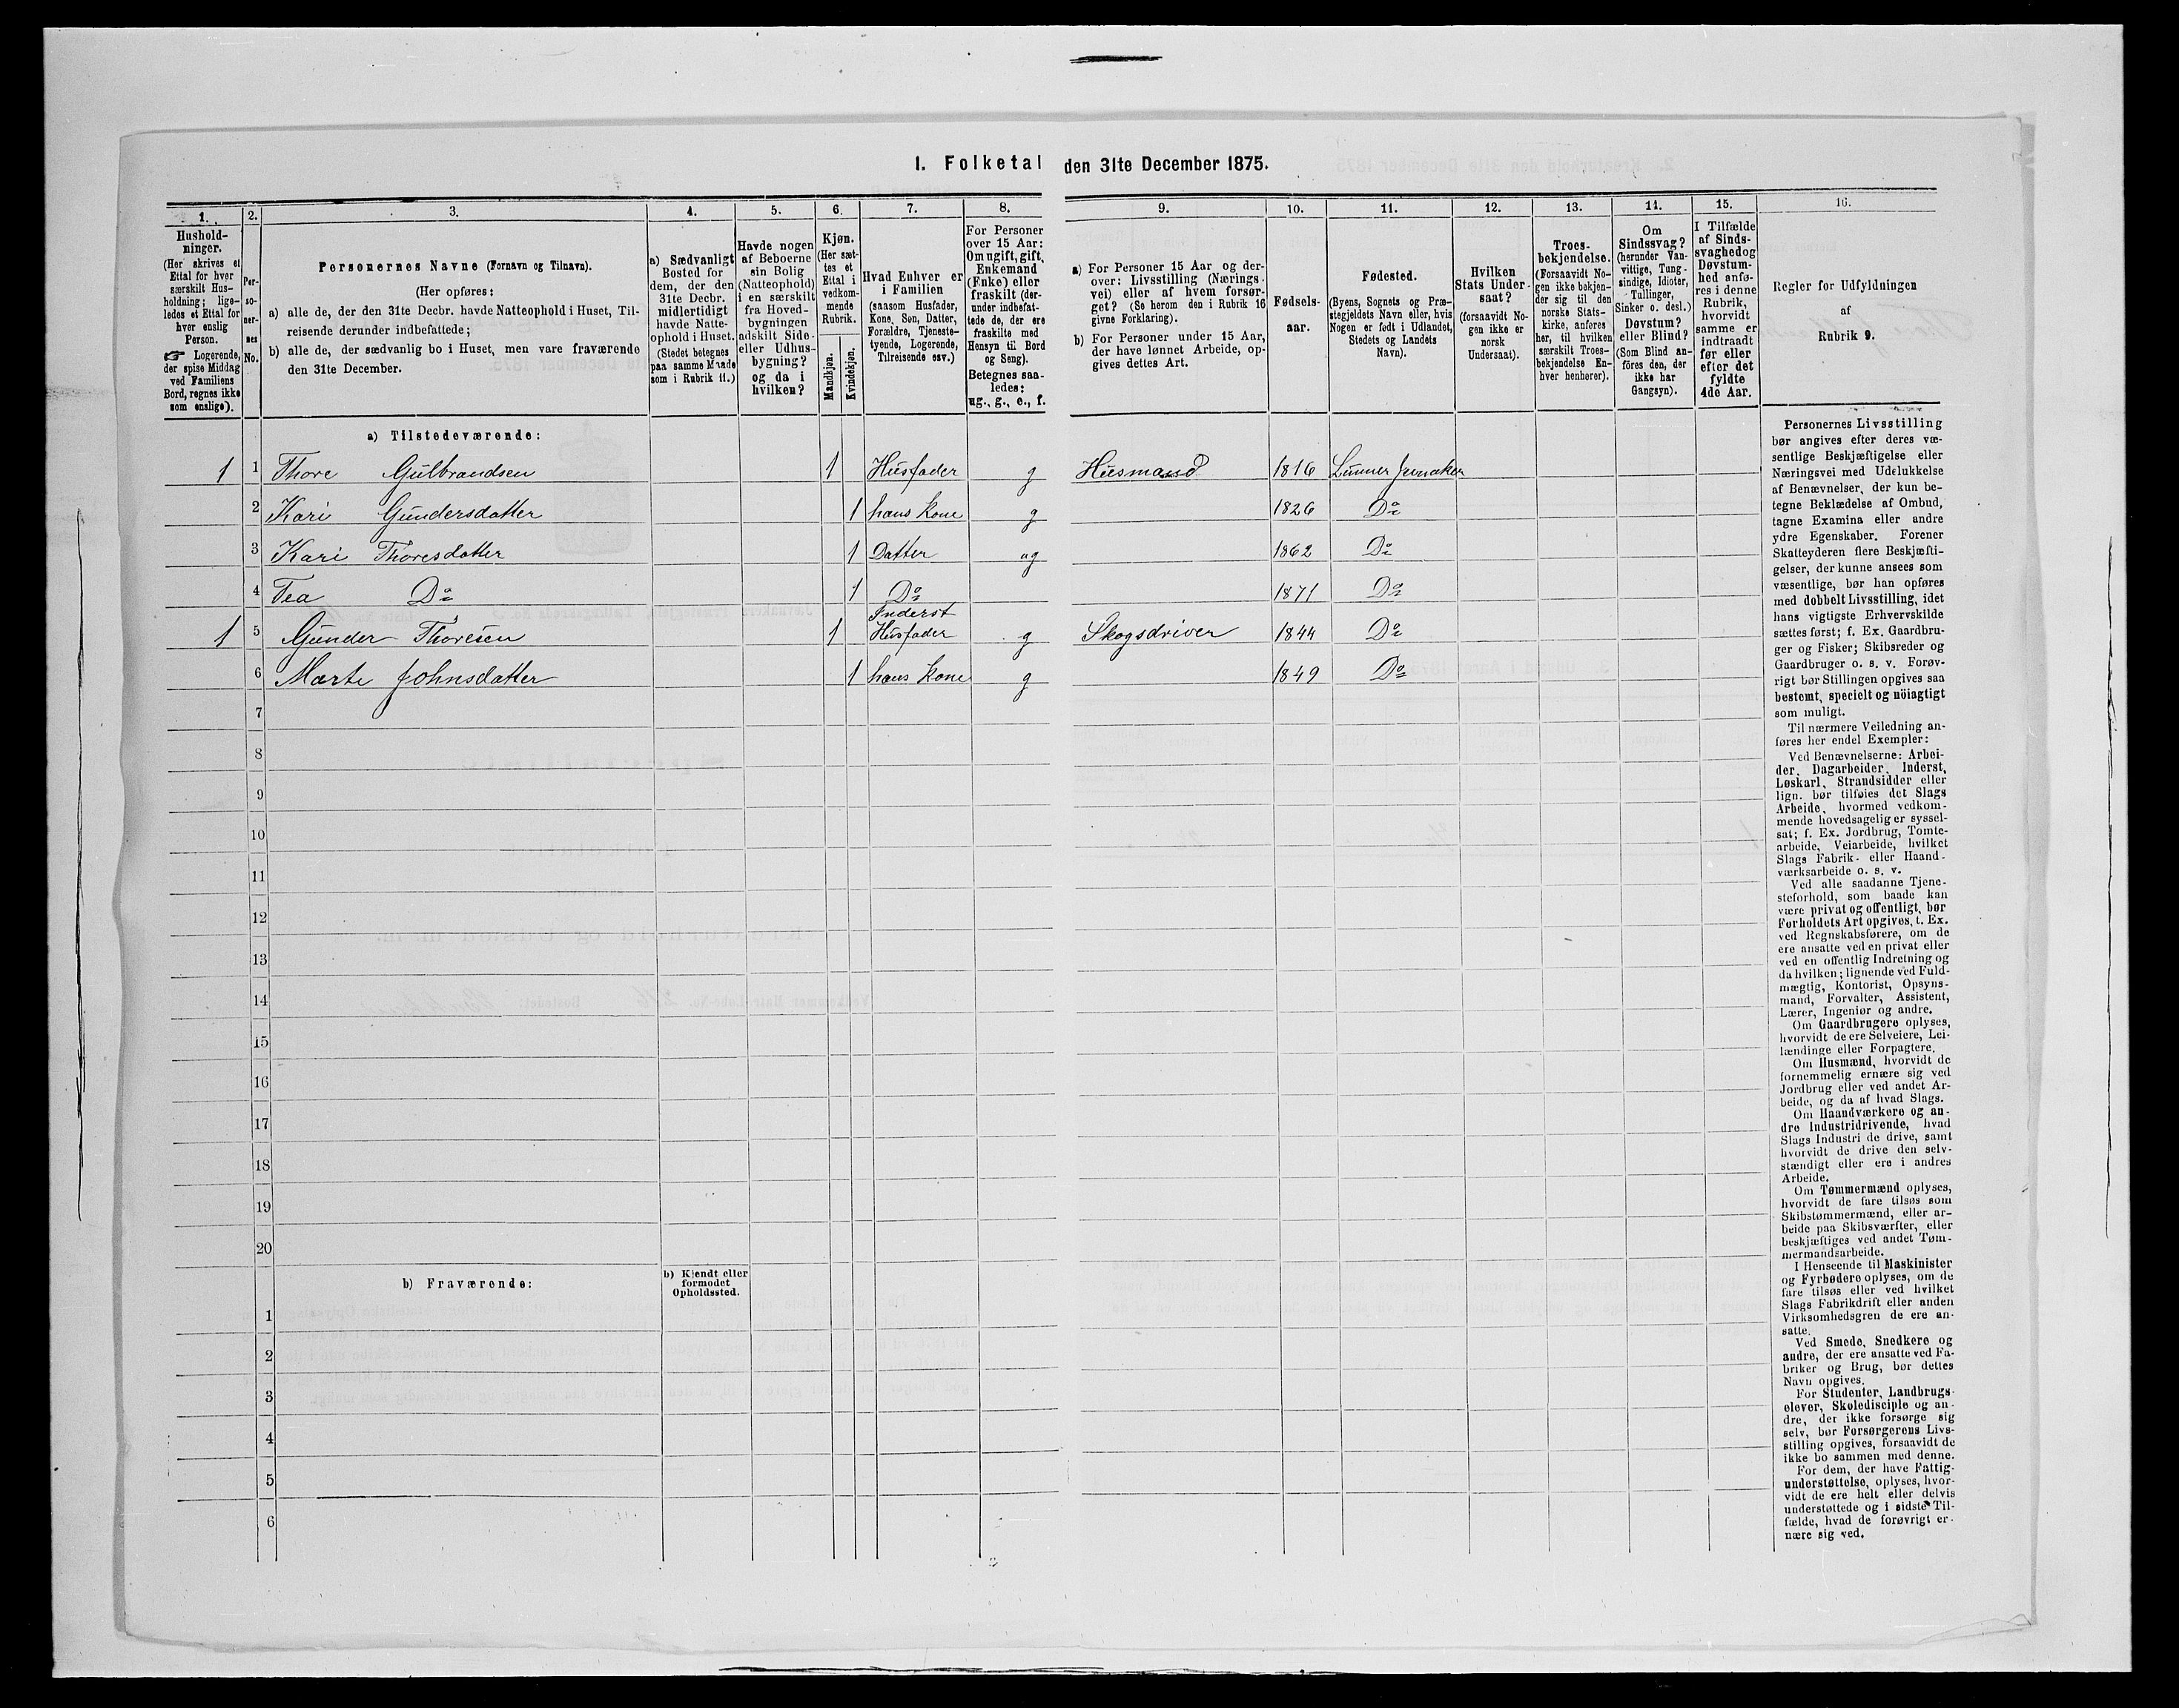 1. Folketal den 31te December 1875.
1. 2. 3. 4. 5. 6. 7. 8. 9. 10. 11. 12. 13. 14. 15. 16.
Hushold-
ninger.
(Her skrives et
Ettal for hver
særskilt Hus-
holdning; lige-
ledes et Ettal for
hver enslig
Person.
☞ Logerende,
der spise Middag
ved Familiens
Bord, regnes ikke
som enslige).
Per-
so-
ner-
nes
No.
Personernes Navne (Fornavn og Tilnavn).
(Her opføres:
a) alle de, der den 31te Decbr. havde Natteophold i Huset, Til-
reisende derunder indbefattede;
b) alle de, der sædvanlig bo i Huset, men vare fraværende
den 31te December.
a) Sædvanligt
Bosted for
dem, der den
31te Decbr.
midlertidigt
havde Natte-
ophold i Huset.
(Stedet betegnes
paa samme Maade
som i Rubrik 11.)
Havde nogen
af Beboerne
sin Bolig
(Natteophold)
i en særskilt
fra Hoved-
bygningen
adskilt Side-
eller Udhus-
bygning?
og da i
hvilken?
Kjøn.
(Her sæt-
tes et
Ettal i
vedkom-
mende
Rubrik.
Mandkjøn.
Kvindekjøn.
Hvad Enhver er
i Familien
(saasom Husfader,
Kone, Søn, Datter,
Forældre, Tjeneste-
tyende, Logerende,
Tilreisende osv.)
For Personer
over 15 Aar:
Om ugift, gift,
Enkemand
(Enke) eller
fraskilt (der-
under indbefat-
tede de, der ere
fraskilte med
Hensyn til Bord
og Seng).
Betegnes saa-
ledes:
ug., g., e., f.
a) For Personer 15 Aar og der-
over: Livsstilling (Nærings-
vei) eller af hvem forsør-
get? (Se herom den i Rubrik 16
givne Forklaring).
b) For Personer under 15 Aar,
der have lønnet Arbeide, op-
gives dettes Art.
Fødsels-
aar.
Fødested.
(Byens, Sognets og Præ-
stegjeldets Navn eller, hvis
Nogen er født i Udlandet,
Stedets og Landets
Navn).
Hvilken
Stats Under-
saat?
(forsaavidt No-
gen ikke er
norsk
Undersaat).
Troes-
bekjendelse.
(Forsaavidt No-
gen ikke bekjen-
der sig til den
norske Stats-
kirke, anføres
her, til hvilken
særskilt Troes-
bekjendelse En-
hver henhører).
Om
Sindssvag?
(herunder Van-
vittige, Tung-
sindige, Idioter,
Tullinger,
Sinker o. desl.)
Døvstum?
eller Blind?
(Som Blind an-
føres den, der
ikke har
Gangsyn).
I Tilfælde
af Sinds-
svaghed og
Døvstum-
hed anfø-
res i denne
Rubrik,
hvorvidt
samme er
indtraadt
før eller
efter det
fyldte
4de Aar.
Regler for Udfyldningen
af
Rubrik 9.
a) Tilstedeværende:
1 1 Thore Gulbrandsen 1 Husfader g Husmand 1816 Lunner Jevnaker
2 Kari Gundersdatter 1 hans kone g 1826 Do
3 Kari Thoresdatter 1 Datter ug 1862 Do
4 Tea Do 1 Do 1871 Do
1 5 Gunder Thoresen 1 Inderst Husfader g Skogsdriver 1844 Do
6 Marte Johnsdatter 1 hans kone g 1849 Do
7
8
9
10
11
12
13
14
15
16
17
18
19
20
b) Fraværende:
b) Kjendt eller
formodet
Opholdssted.
1
2
3
4
5
6
Personernes Livsstilling
bør angives efter deres væ-
sentlige Beskjæftigelse eller
Næringsvei med Udelukkelse
af Benævnelser, der kun be-
tegne Beklædelse af Ombud,
tagne Examina eller andre
ydre Egenskaber. Forener
Skatteyderen flere Beskjæfti-
gelser, der kunne ansees som
væsentlige, bør han opføres
med dobbelt Livsstilling, idet
hans vigtigste Erhvervskilde
sættes først; f. Ex. Gaardbru-
ger og Fisker; Skibsreder og
Gaardbruger o. s. v. Forøv-
rigt bør Stillingen opgives saa
bestemt, specielt og nøiagtigt
som muligt.
Til nærmere Veiledning an-
føres her endel Exempler:
Ved Benævnelserne: Arbei-
der, Dagarbeider, Inderst,
Løskarl, Strandsidder eller
lign. bør tilføies det Slags
Arbeide, hvormed vedkom-
mende hovedsagelig er syssel-
sat; f. Ex. Jordbrug, Tomte-
arbeide, Veiarbeide, hvilket
Slags Fabrik- eller Haand-
værksarbeide o. s. v.
Ved alle saadanne Tjene-
steforhold, som baade kan
være privat og offentligt, bør
Forholdets Art opgives, t. Ex.
ved Regnskabsførere, om de
ere ansatte ved en privat eller
ved en offentlig Indretning og
da hvilken; lignende ved Fuld-
mægtig, Kontorist, Opsyns-
mand, Forvalter, Assistent,
Lærer, Ingeniør og andre.
Om Gaardbrugere oplyses,
hvorvidt de ere Selveiere, Lei-
lændinge eller Forpagtere.
Om Husmænd, hvorvidt de
fornemmelig ernære sig ved
Jordbrug eller ved andet Ar-
beide, og da af hvad Slags.
Om Haandværkere og an-
dre Industridrivende, hvad
Slags Industri de drive, samt
hvorvidt de drive den selv-
stændigt eller ere i andres
Arbeide.
Om Tømmermænd oplyses,
hvorvidt de fare tilsøs som
Skibstømmermænd, eller ar-
beide paa Skibsværfter, eller
beskjæftiges ved andet Tøm-
mermandsarbeide.
I Henseende til Maskinister
og Fyrbødere oplyses, om de
fare tilsøs eller ved hvilket
Slags Fabrikdrift eller anden
Virksomhedsgren de ere an-
satte.
Ved Smede, Snedkere og
andre, der ere ansatte ved Fa-
briker og Brug, bør dettes
Navn opgives.
For Studenter, Landbrugs-
elever, Skoledisciple og an-
dre, der ikke forsørge sig
selv, bør Forsørgerens Livs-
stilling opgives, forsaavidt de
ikke bo sammen med denne.
For dem, der have Fattig-
understøttelse, oplyses, hvor-
vidt de ere helt eller delvis
understøttede og i sidste Til-
fælde, hvad de forøvrigt er-
nære sig ved.